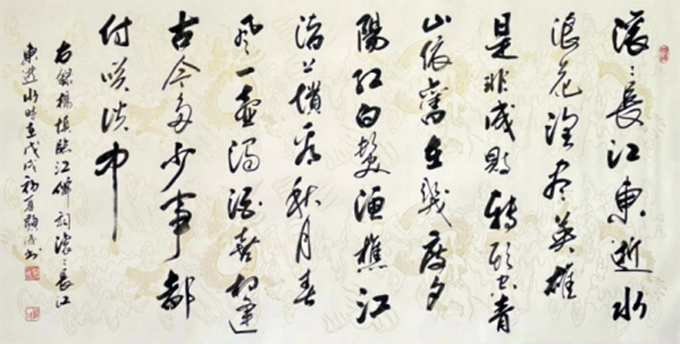 滚〻長江東逝水
浪花淘尽英雄
是非成敗轉頭空青
山依舊在幾度夕
陽红白髮渔樵江
渚上慣看秋月春
風一壶濁酒喜相逢
古今多少事都
付笑谈中
右録楊慎臨江僊词滚〻長江
東逝水時在戊戌初夏书